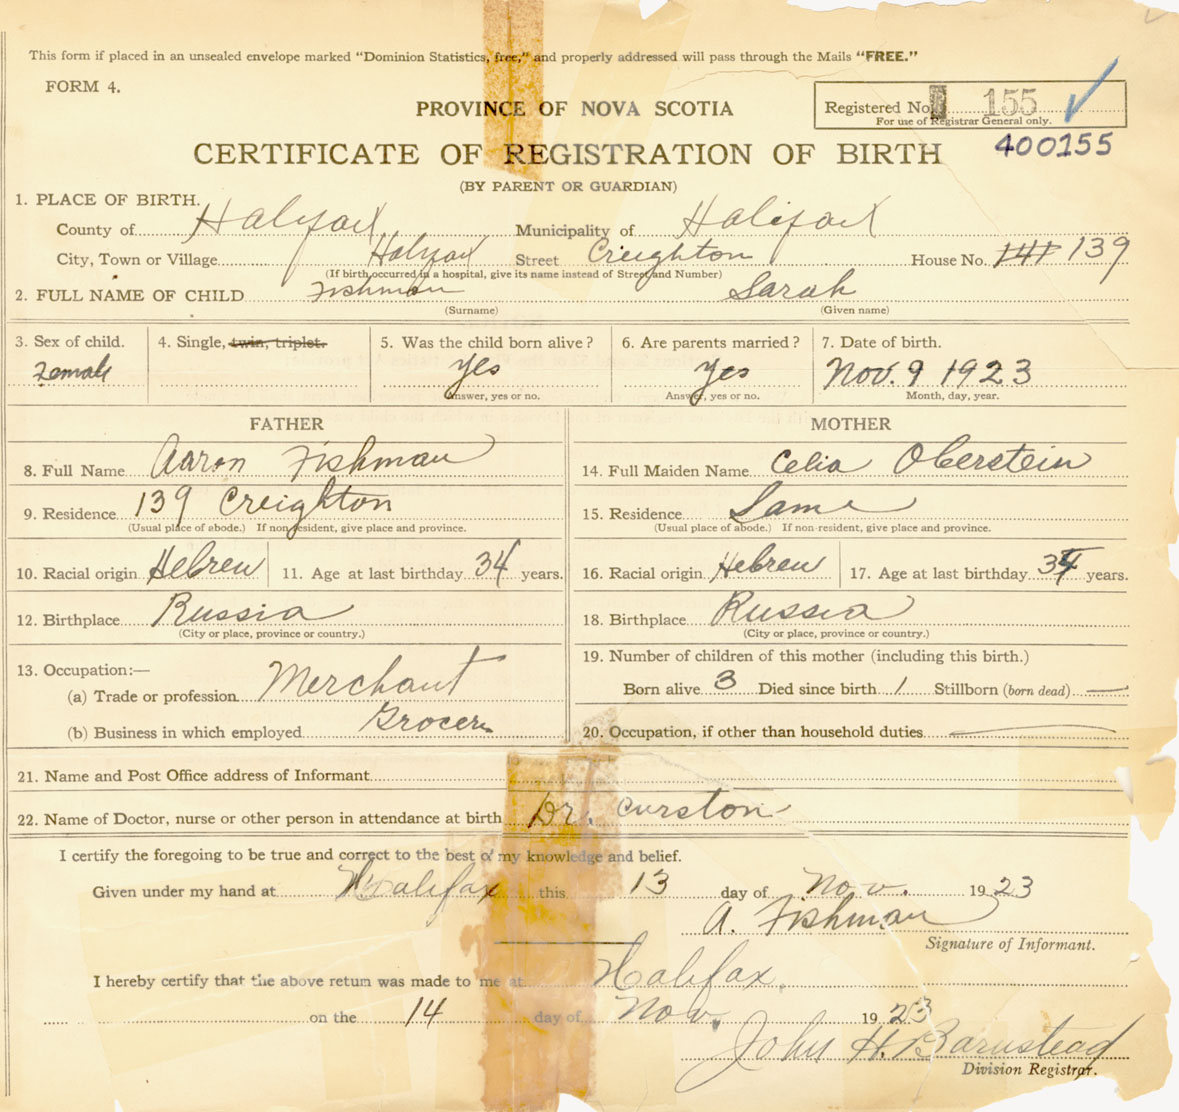 This form if placed in an unsealed envelope marked "Dominion Statistics, free," and properly addressed will pass through the Mails "FREE."
FORM 4.
PROVINCE OF NOVA SCOTIA
Registered No. 155
For use of Registrar General only.
400155
CERTIFICATE OF REGISTRATION OF BIRTH
(BY PARENT OR GUARDIAN)
1. PLACE OF BIRTH.
County of Halifax Municipality of Halifax
City, Town or Village Halifax Street Creighton House No. 141 139
(If birth occurred in a hospital, give its name instead of Street and Number)
2. FULL NAME OF CHILD Fishman Sarah
(Surname) (Given name)
3. Sex of child. 4. Single, twin, triplet. 5. Was the child born alive? 6. Are parents married? 7. Date of birth.
Female yes yes Nov. 9 1923
Answer, yes or no. Answer, yes or no. Month, day, year.
FATHER MOTHER
8. Full Name Aaron Fishman 14. Full Maiden Name Celia Oberstein
9. Residence 139 Creighton 15. Residence Same
(Usual place of abode.) If non-resident, give place and province. (Usual place of abode.) If non-resident, give place and province.
10. Racial origin Hebrew 11. Age at last birthday 34 years. 16. Racial origin Hebrew 17. Age at last birthday 34 years.
12. Birthplace Russia 18. Birthplace Russia
(City or place, province or country.) (City or place, province or country.)
13. Occupation:— 19. Number of children of this mother (including this birth.)
(a) Trade or profession Merchant Born alive 3 Died since birth 1 Stillborn (born dead) —
(b) Business in which employed Grocery 20. Occupation, if other than household duties —
21. Name and Post Office address of Informant
22. Name of Doctor, nurse or other person in attendance at birth Dr. Curston
I certify the foregoing to be true and correct to the best of my knowledge and belief.
Given under my hand at Halifax this 13 day of Nov. 1923
A. Fishman
Signature of Informant.
I hereby certify that the above return was made to me at Halifax.
on the 14 day of Nov. 1923
John H. Barnstead
Division Registrar.